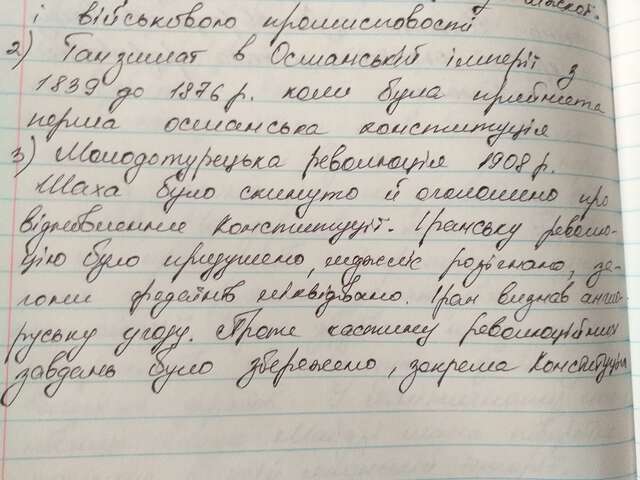 і військового промисловості
2) Танзимат в Османській імперії з
1839 до 1876 р. коли була прийнята
перша османська конституція
3) Молодотурецька революція 1908 р.
Шаха було скинуто й оголошено про
відновлення Конституції. Іранську револю-
цію було придушено, меджліс розігнано, за-
гони федаїнів ліквідовано. Іран визнав англо-
руську угоду. Проте частину революційних
завдань було збережено, зокрема Конституція